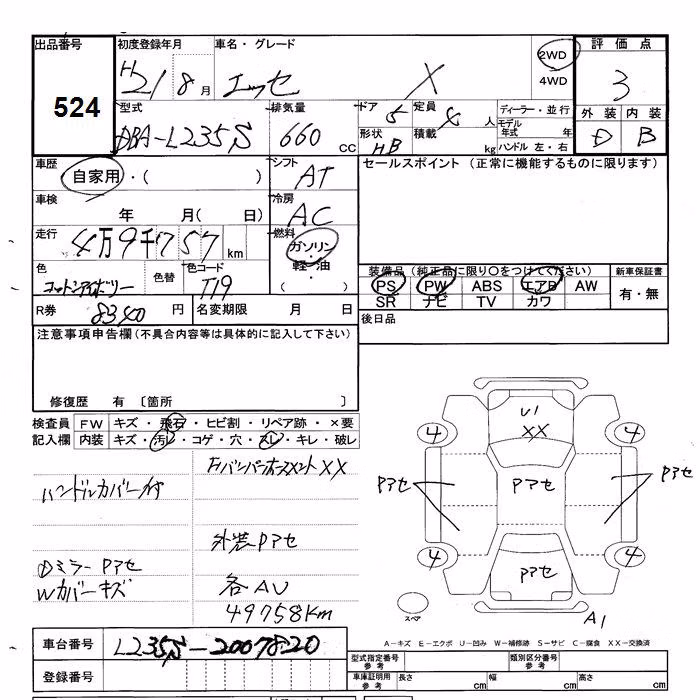 出品番号 初度登録年月 車名・グレード 評価点
524
H21 8月 エッセ X 2WD 4WD 3
型式 排気量 ドア 5 定員 4人 ディーラー・並行 外装 内装
DBA-L235S 660 cc 形状 HB 積載 kg モデル年式 年 ハンドル 左・右 D B
車歴 自家用・( ) シフト AT セールスポイント (正常に機能するものに限ります)
車検 年 月( 日) 冷房 AC
走行 4万9千757km 燃料 ガソリン・軽・油 ( )
色 コットンアイボリー 色替 色コード T19
装備品(純正品に限り○をつけてください) 新車保証書
PS PW ABS エアB AW 有・無
SR ナビ TV カワ
R券 8340円 名変期限 月 日 後日品
注意事項申告欄(不具合内容等は具体的に記入して下さい)
修復歴 有 〔箇所 〕
検査員 FW キズ・飛石・ヒビ割・リペア跡・×要
記入欄 内装 キズ・汚レ・コゲ・穴・スレ・キレ・破レ
FバンパーホースメントXX
ハンドルカバー付
外装Pアセ
DミラーPアセ
Wカバーキズ 各AU
49758Km
U1
XX
4 4
Pアセ Pアセ Pアセ
4 4
Pアセ
スペア A1
A-キズ E-エクボ U-凹み W-補修跡 S-サビ C-腐食 XX-交換済
車台番号 L235S-2007820
登録番号
型式指定番号 参考 類別区分番号 参考
車庫証明用 参考 長さ cm 幅 cm 高さ cm